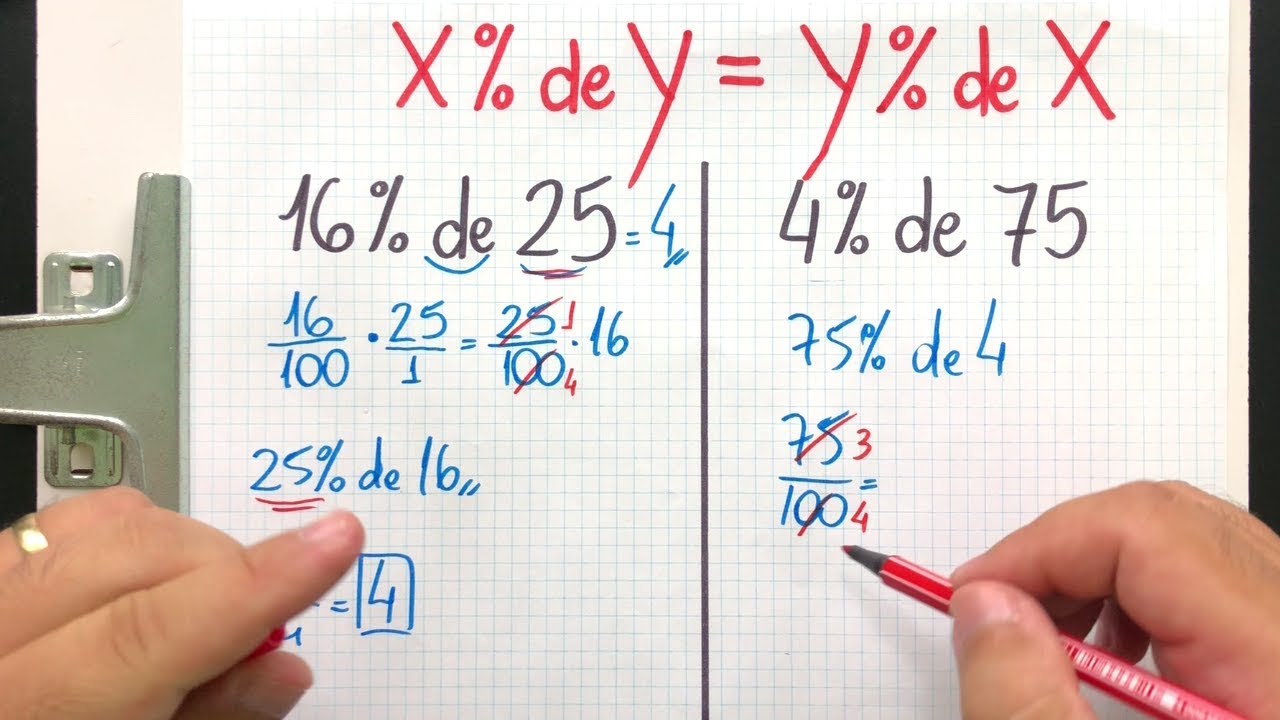 X% de Y = Y% de X
16% de 25 = 4
16/100 · 25/1 = 25/100 1 4 · 16
25% de 16
= 4
4% de 75
75% de 4
75/100 3 4 =